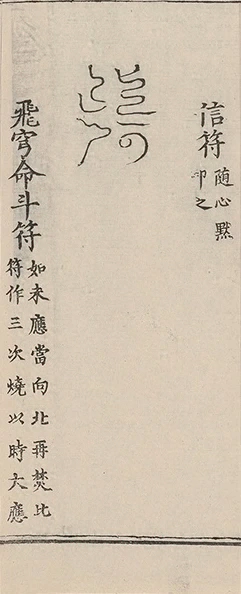 信符
随心黙
卯之
飛穹命斗符
如未應當向北再焚比
符作三次燒以時大應